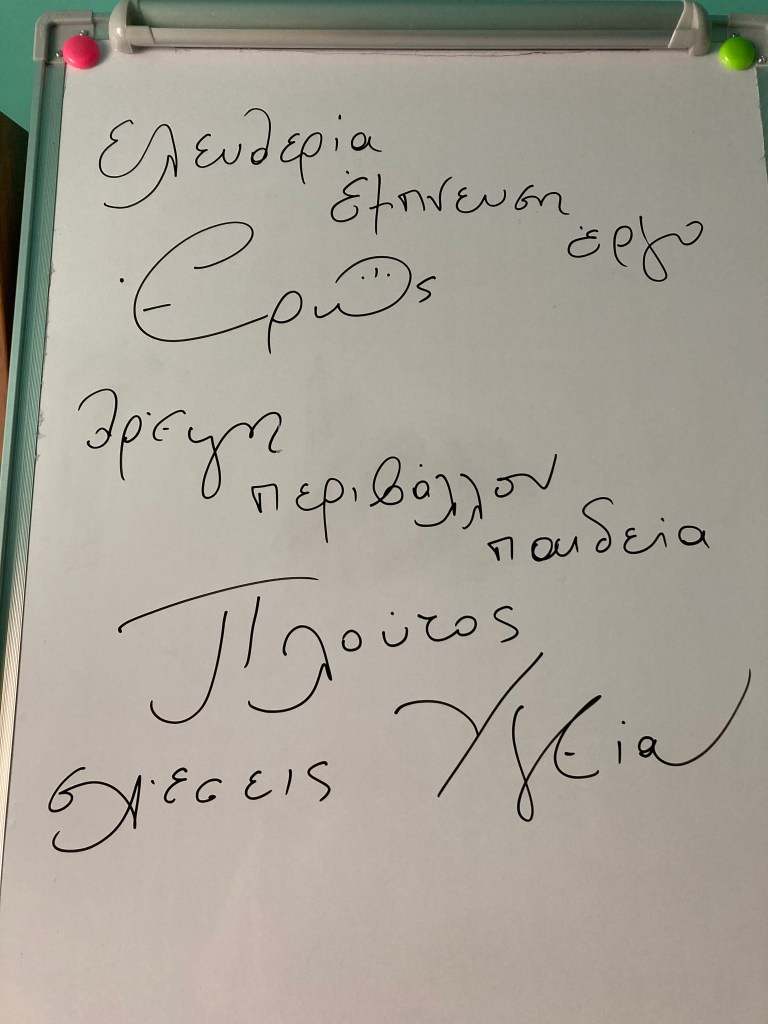 ελευθερία
έμπνευση
έργο
Έρως
θρέψη
περιβάλλον
παιδεία
Πλούτος
Υγεία
σχέσεις